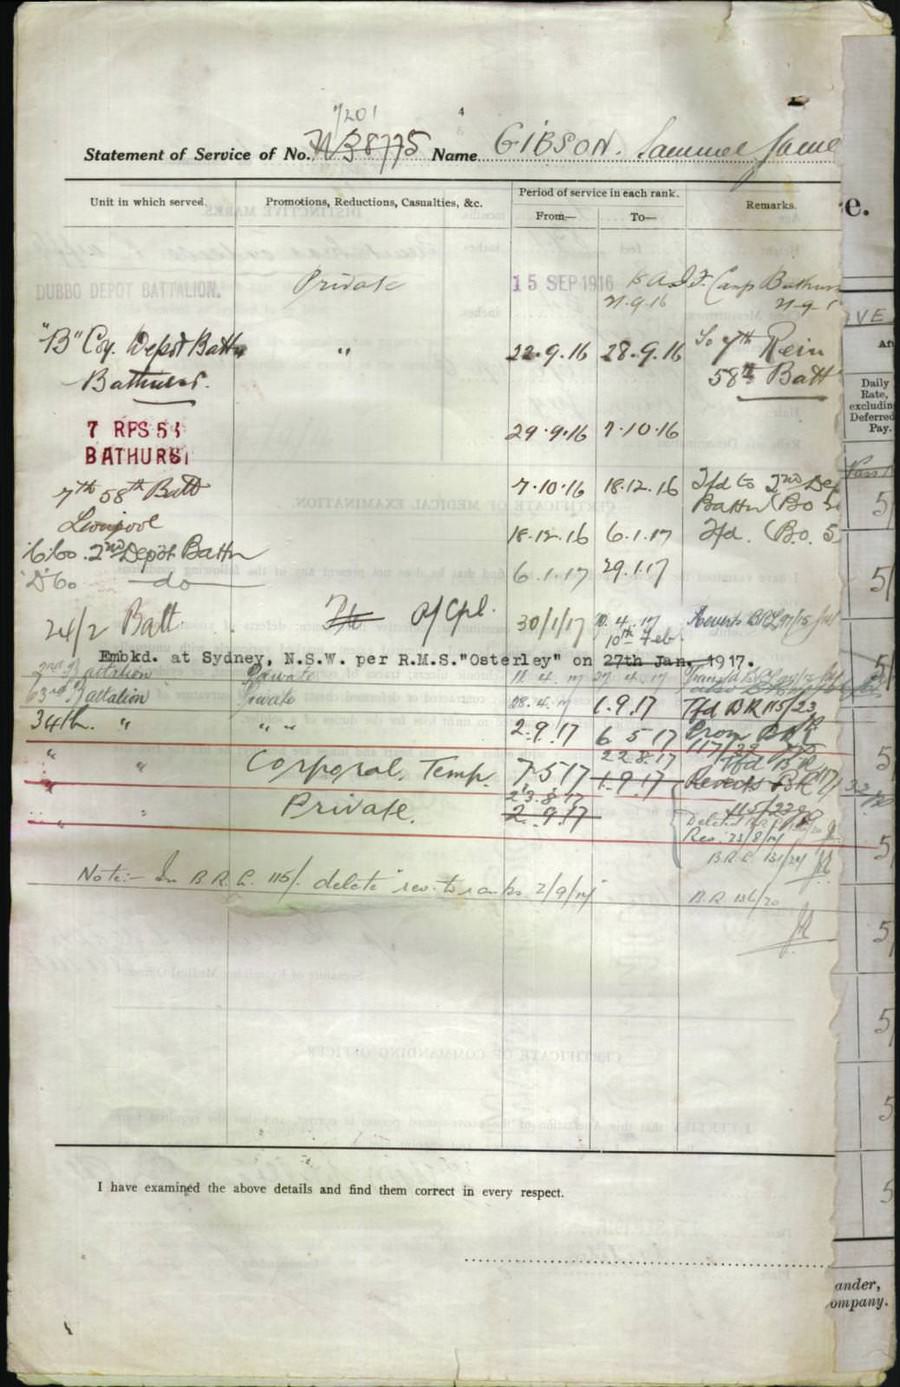 7201
4
Statement of Service of No. N38775 Name GIBSON. Samuel Jame
Unit in which served. Promotions, Reductions, Casualties, &c. Period of service in each rank. Remarks.
From— To—
DUBBO DEPOT BATTALION. Private 15 SEP 1916 21.9.16 Camp Bathurs
"B" Coy. Depot Battn " 22.9.16 28.9.16 To 7th Rein
Bathurst. 58th Batt
7 RFS 58
BATHURST 29.9.16 7.10.16
7th 58th Batt 7.10.16 18.12.16 Tfd to 2nd De
Liverpool Battn (Bo
C Co. 2nd Depot Battn 18.12.16 6.1.17 Tfd. (B.o. 5
D Co —do— 6.1.17 29.1.17
24/2 Batt A/Cpl. 30/1/17 10.4.17 Reverts
10th Feb
Embkd. at Sydney, N.S.W. per R.M.S."Osterley" on 27th Jan. 1917.
2nd Battalion Private 11.4.17 27.4.17
63rd Battalion Private 28.4.17 1.9.17 Tfd BR 115/23
34th " " " 2.9.17 6.5.17 Prom BR
117/
" " Corporal Temp. 7.5.17 22.8.17 Tfd BR
1.9.17 Reverts BR
" " Private. 23.8.17
2.9.17 115/
Rev. 23/8/17
B.R.
Note:- In B.R.L. 115/. delete rev. to ranks 2/9/17 B.R. 136/70
I have examined the above details and find them correct in every respect.
e.
IVE
Daily
Rate,
excludin
Deferred
Pay.
5
5
5
5
5
5
5
5
5
ander,
ompany.